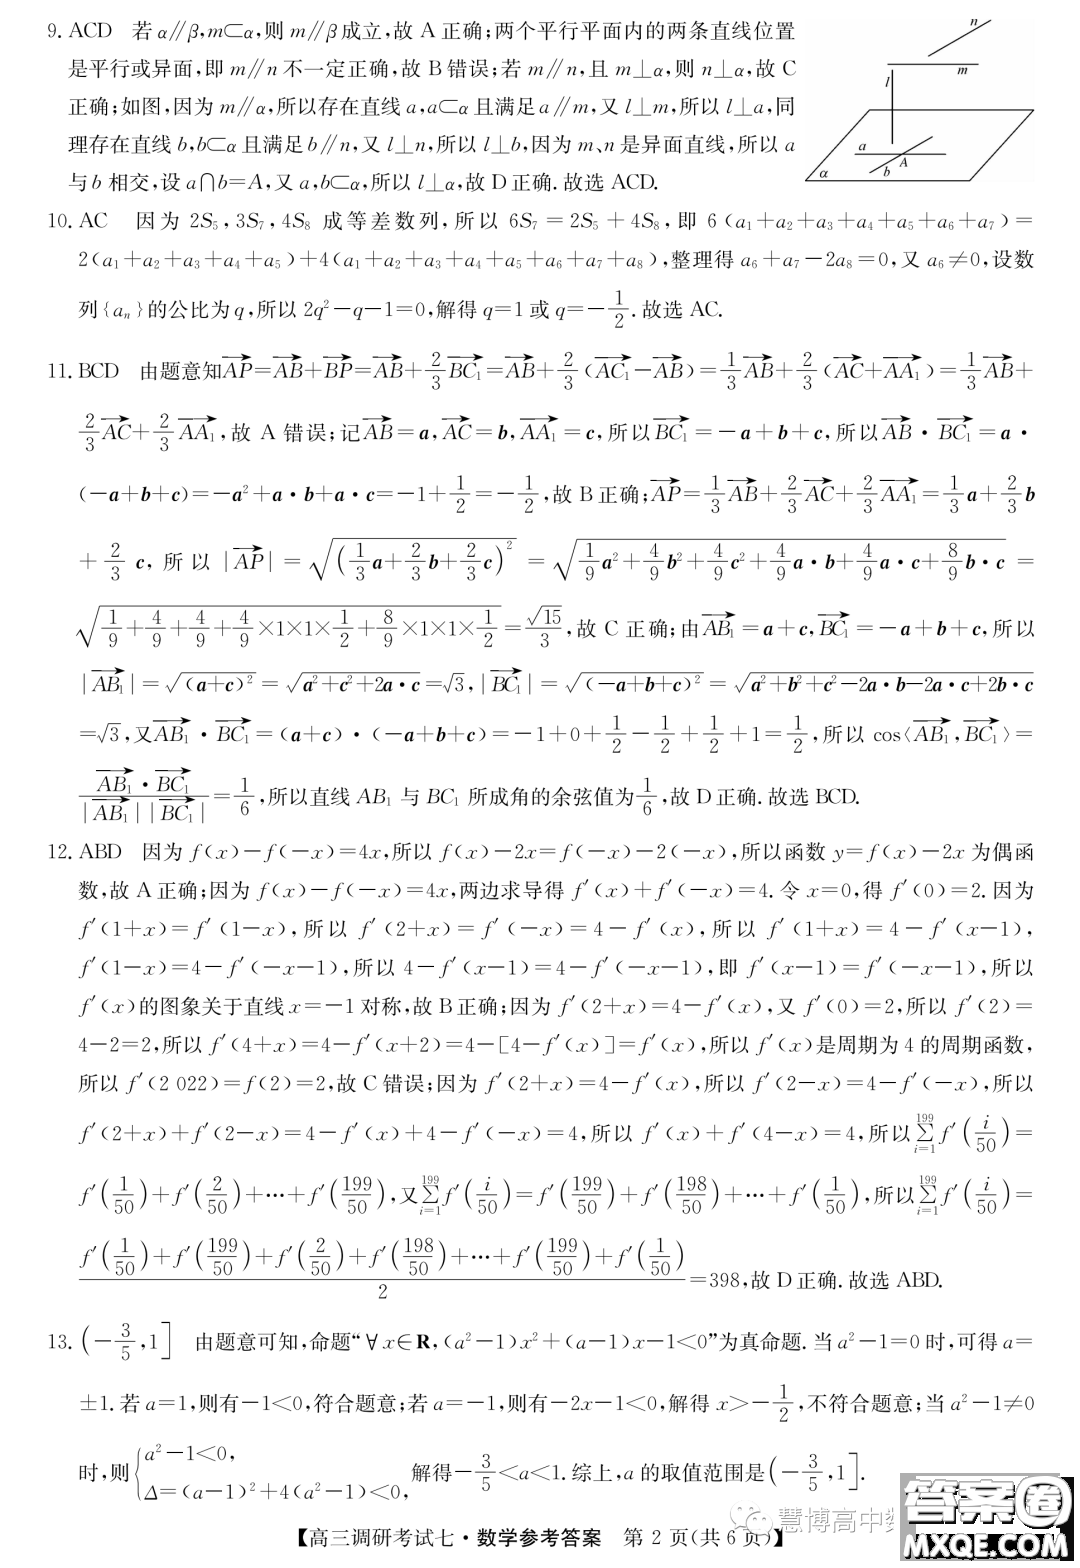 9. ACD 若 α∥β,m⊂α,则 m∥β 成立,故 A 正确;两个平行平面内的两条直线位置
是平行或异面,即 m∥n 不一定正确,故 B 错误;若 m∥n,且 m⊥α,则 n⊥α,故 C
正确;如图,因为 m∥α,所以存在直线 a,a⊂α 且满足 a∥m,又 l⊥m,所以 l⊥a,同
理存在直线 b,b⊂α 且满足 b∥n,又 l⊥n,所以 l⊥b,因为 m、n 是异面直线,所以 a
与 b 相交,设 a∩b=A,又 a,b⊂α,所以 l⊥α,故 D 正确. 故选 ACD.
n
m
l
a
A
b
α
10. AC 因为 2S₅,3S₇,4S₈ 成等差数列,所以 6S₇=2S₅+4S₈,即 6(a₁+a₂+a₃+a₄+a₅+a₆+a₇)=
2(a₁+a₂+a₃+a₄+a₅)+4(a₁+a₂+a₃+a₄+a₅+a₆+a₇+a₈),整理得 a₆+a₇-2a₈=0,又 a₆≠0,设数
列{aₙ}的公比为 q,所以 2q²-q-1=0,解得 q=1 或 q=-1/2. 故选 AC.
11. BCD 由题意知AP→=AB→+BP→=AB→+2/3 BC₁→=AB→+2/3(AC₁→-AB→)=1/3 AB→+2/3(AC→+AA₁→)=1/3 AB→+
2/3 AC→+2/3 AA₁→,故 A 错误;记AB→=a,AC→=b,AA₁→=c,所以BC₁→=-a+b+c,所以AB→·BC₁→=a·
(-a+b+c)=-a²+a·b+a·c=-1+1/2=-1/2,故 B 正确;AP→=1/3 AB→+2/3 AC→+2/3 AA₁→=1/3 a+2/3 b
+2/3 c,所以|AP→|=√((1/3 a+2/3 b+2/3 c)²)=√(1/9 a²+4/9 b²+4/9 c²+4/9 a·b+4/9 a·c+8/9 b·c)=
√(1/9+4/9+4/9+4/9×1×1×1/2+8/9×1×1×1/2)=√15/3,故 C 正确;由AB₁→=a+c,BC₁→=-a+b+c,所以
|AB₁→|=√((a+c)²)=√(a²+c²+2a·c)=√3,|BC₁→|=√((-a+b+c)²)=√(a²+b²+c²-2a·b-2a·c+2b·c)
=√3,又AB₁→·BC₁→=(a+c)·(-a+b+c)=-1+0+1/2-1/2+1/2+1=1/2,所以 cos〈AB₁→,BC₁→〉=
AB₁→·BC₁→/(|AB₁→||BC₁→|)=1/6,所以直线 AB₁ 与 BC₁ 所成角的余弦值为1/6,故 D 正确. 故选 BCD.
12. ABD 因为 f(x)-f(-x)=4x,所以 f(x)-2x=f(-x)-2(-x),所以函数 y=f(x)-2x 为偶函
数,故 A 正确;因为 f(x)-f(-x)=4x,两边求导得 f′(x)+f′(-x)=4. 令 x=0,得 f′(0)=2. 因为
f′(1+x)=f′(1-x),所以 f′(2+x)=f′(-x)=4-f′(x),所以 f′(1+x)=4-f′(x-1),
f′(1-x)=4-f′(-x-1),所以 4-f′(x-1)=4-f′(-x-1),即 f′(x-1)=f′(-x-1),所以
f′(x)的图象关于直线 x=-1 对称,故 B 正确;因为 f′(2+x)=4-f′(x),又 f′(0)=2,所以 f′(2)=
4-2=2,所以 f′(4+x)=4-f′(x+2)=4-[4-f′(x)]=f′(x),所以 f′(x)是周期为 4 的周期函数,
所以 f′(2 022)=f(2)=2,故 C 错误;因为 f′(2+x)=4-f′(x),所以 f′(2-x)=4-f′(-x),所以
f′(2+x)+f′(2-x)=4-f′(x)+4-f′(-x)=4,所以 f′(x)+f′(4-x)=4,所以 ∑(i=1→199) f′(i/50)=
f′(1/50)+f′(2/50)+…+f′(199/50),又 ∑(i=1→199) f′(i/50)=f′(199/50)+f′(198/50)+…+f′(1/50),所以 ∑(i=1→199) f′(i/50)=
[f′(1/50)+f′(199/50)+f′(2/50)+f′(198/50)+…+f′(199/50)+f′(1/50)]/2=398,故 D 正确. 故选 ABD.
13. (-3/5,1] 由题意可知,命题“∀x∈R,(a²-1)x²+(a-1)x-1<0”为真命题. 当 a²-1=0 时,可得 a=
±1. 若 a=1,则有-1<0,符合题意;若 a=-1,则有-2x-1<0,解得 x>-1/2,不符合题意;当 a²-1≠0
时,则{a²-1<0, Δ=(a-1)²+4(a²-1)<0, 解得-3/5<a<1. 综上,a 的取值范围是(-3/5,1].
【高三调研考试七·数学参考答案 第 2 页(共 6 页)】
慧博高中数
答案圈
MXQE.COM